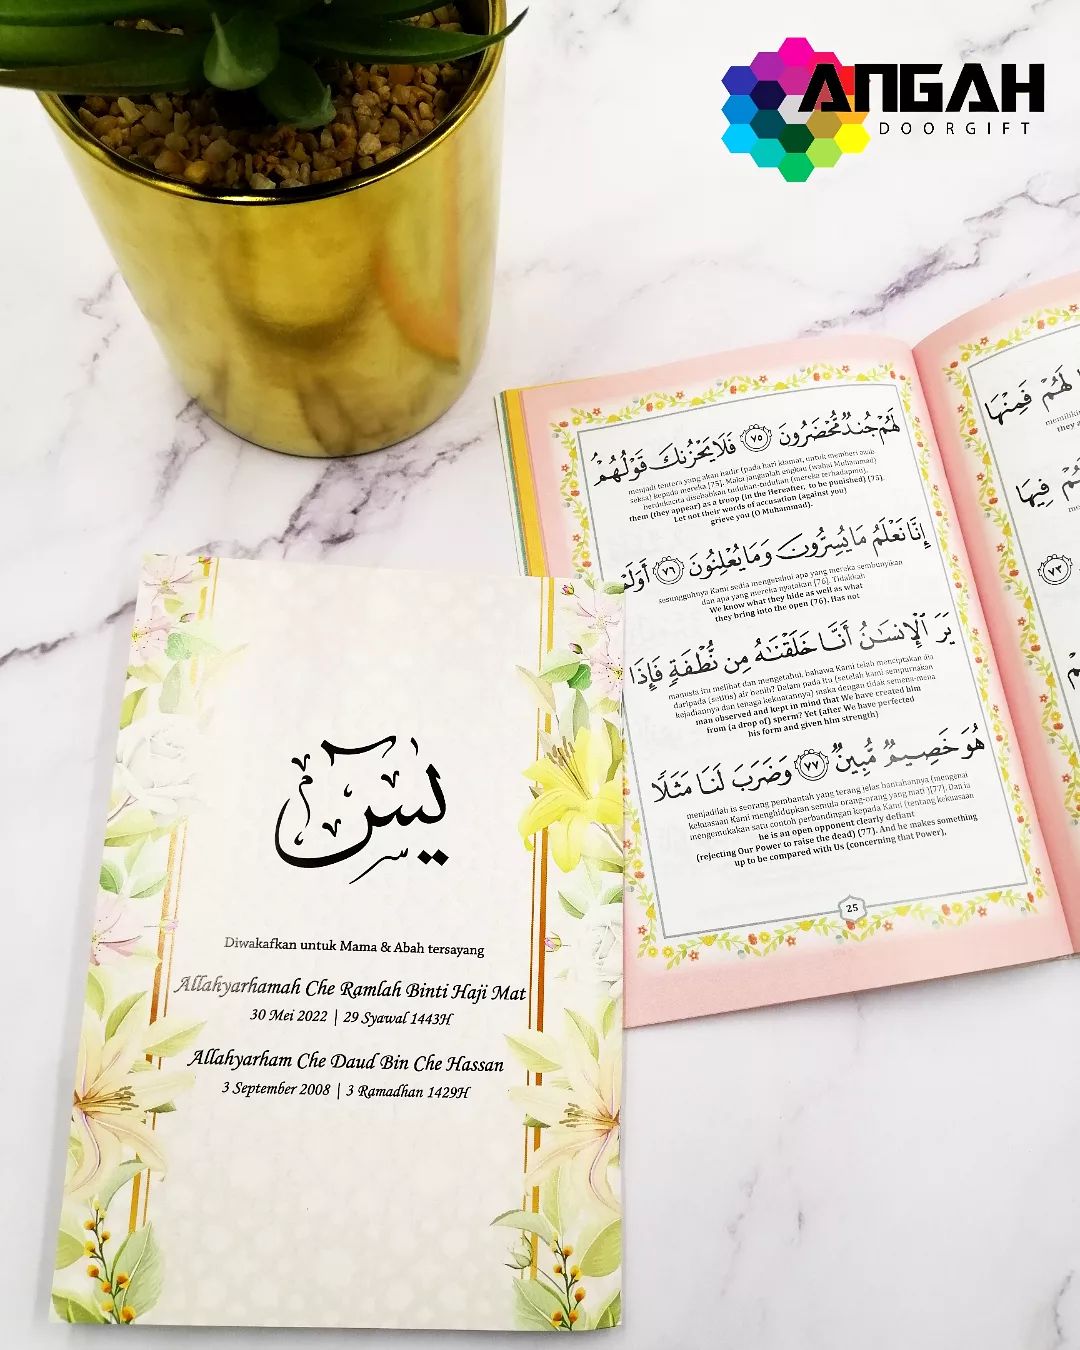 ANGAH
DOORGIFT
لَهُمْ جُندٌ مُّحْضَرُونَ ٧٥ فَلَا يَحْزُنكَ قَوْلُهُمْ
menjadi tentera yang akan hadir (pada hari kiamat, untuk memberi azab
seksa) kepada mereka [75]. Maka janganlah engkau (wahai Muhammad)
berdukacita disebabkan tuduhan-tuduhan (mereka terhadapmu).
them (they appear) as a troop (in the Hereafter, to be punished) (75).
Let not their words of accusation (against you)
grieve you (O Muhammad).
إِنَّا نَعْلَمُ مَا يُسِرُّونَ وَمَا يُعْلِنُونَ ٧٦ أَوَلَمْ
sesungguhnya Kami sedia mengetahui apa yang mereka sembunyikan
dan apa yang mereka nyatakan [76]. Tidakkah
We know what they hide as well as what
they bring into the open (76). Has not
يَرَ ٱلْإِنسَـٰنُ أَنَّا خَلَقْنَـٰهُ مِن نُّطْفَةٍ فَإِذَا
manusia itu melihat dan mengetahui, bahawa Kami telah menciptakan dia
daripada (setitis) air benih? Dalam pada itu (setelah kami sempurnakan
kejadiannya dan tenaga kekuatannya) maka dengan tidak semena-mena
man observed and kept in mind that We have created him
from (a drop of) sperm? Yet (after We have perfected
his form and given him strength)
هُوَ خَصِيمٌ مُّبِينٌ ٧٧ وَضَرَبَ لَنَا مَثَلًا
menjadilah ia seorang pembantah yang terang jelas bantahannya (mengenai
kekuasaan Kami menghidupkan semula orang-orang yang mati )[77]. Dan ia
mengemukakan satu contoh perbandingan kepada Kami (tentang kekuasaan
he is an open opponent clearly defiant
(rejecting Our Power to raise the dead) (77). And he makes something
up to be compared with Us (concerning that Power).
25
لَهُمْ فَمِنْهَا
they a
فِيهَا
٧٣
يس
Diwakafkan untuk Mama & Abah tersayang
Allahyarhamah Che Ramlah Binti Haji Mat
30 Mei 2022 | 29 Syawal 1443H
Allahyarham Che Daud Bin Che Hassan
3 September 2008 | 3 Ramadhan 1429H